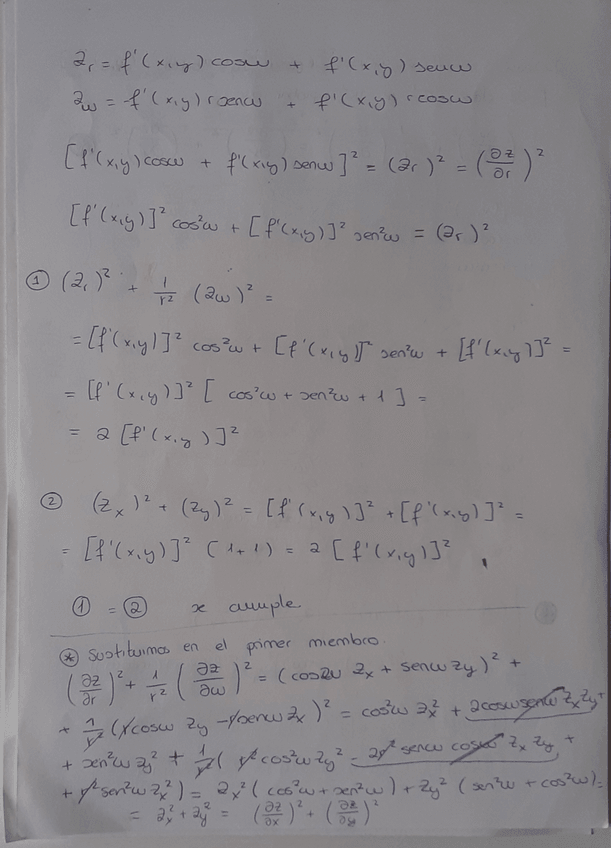 z_r = f'(x,y) cosω + f'(x,y) senω
z_ω = -f'(x,y) r senω + f'(x,y) r cosω
[f'(x,y) cosω + f'(x,y) senω]² = (z_r)² = (∂z/∂r)²
[f'(x,y)]² cos²ω + [f'(x,y)]² sen²ω = (z_r)²
① (z_r)² + 1/r² (z_ω)² =
= [f'(x,y)]² cos²ω + [f'(x,y)]² sen²ω + [f'(x,y)]² =
= [f'(x,y)]² [cos²ω + sen²ω + 1] =
= 2 [f'(x,y)]²
② (z_x)² + (z_y)² = [f'(x,y)]² + [f'(x,y)]² =
= [f'(x,y)]² (1+1) = 2 [f'(x,y)]²
① = ② se cumple
⊛ Sustituimos en el primer miembro.
(∂z/∂r)² + 1/r² (∂z/∂ω)² = (cosω z_x + senω z_y)² +
+ 1/r² (r cosω z_y - r senω z_x)² = cos²ω z_x² + 2cosω senω z_x z_y +
+ sen²ω z_y² + 1/r² (r² cos²ω z_y² - 2r² senω cosω z_x z_y +
+ r² sen²ω z_x²) = z_x² (cos²ω + sen²ω) + z_y² (sen²ω + cos²ω) =
= z_x² + z_y² = (∂z/∂x)² + (∂z/∂y)²